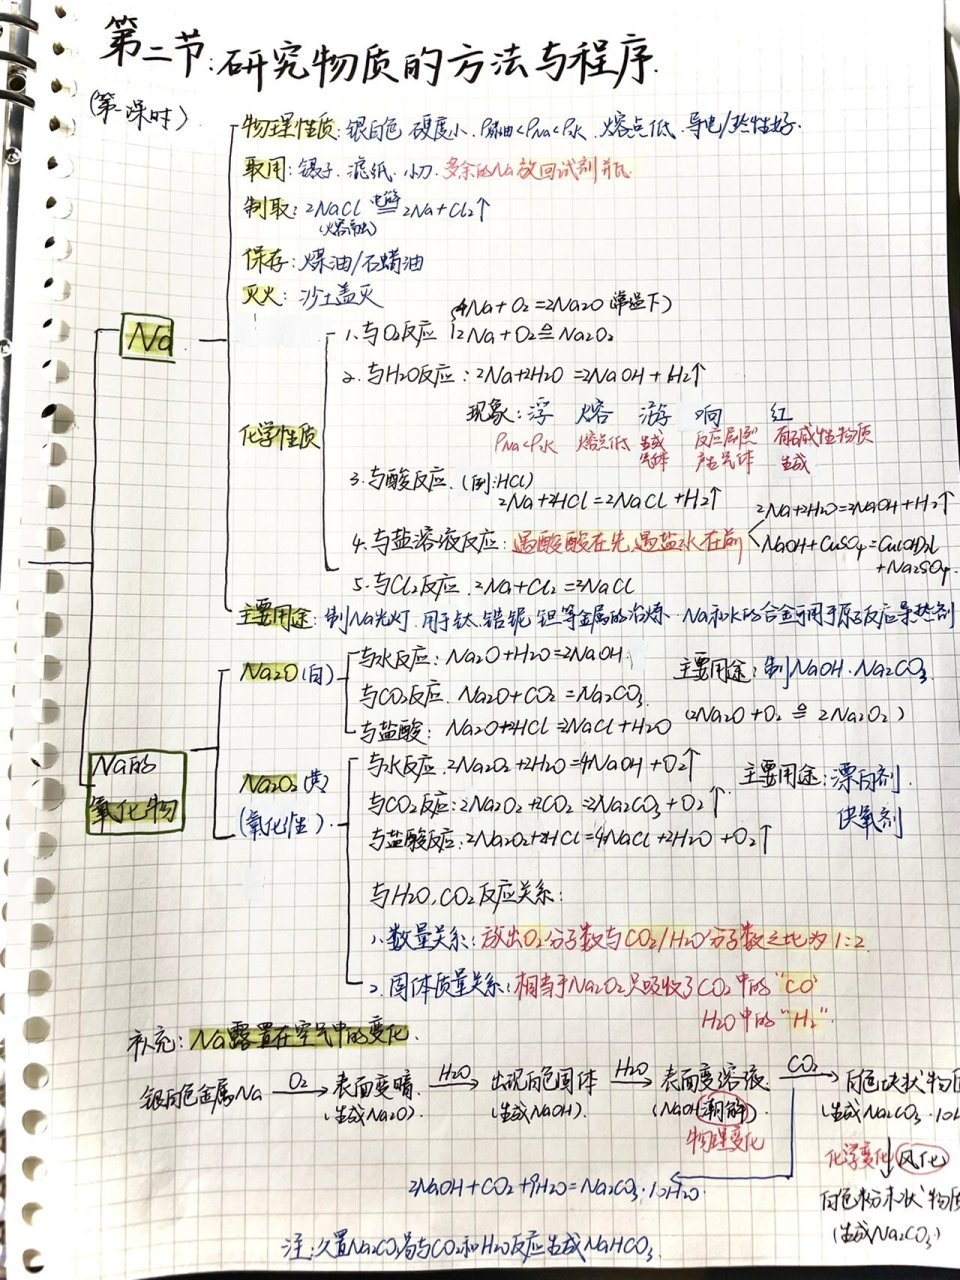 第二节:研究物质的方法与程序.
(第一课时)
物理性质:银白色 硬度小、ρ煤油<ρNa<ρ水、熔点低、导电/热性好.
取用:镊子、滤纸、小刀、多余的Na放回试剂瓶
制取:2NaCl 电解═ 2Na+Cl₂↑
(熔融)
保存:煤油/石蜡油
灭火:沙土盖灭
Na
化学性质
4Na+O₂=2Na₂O (常温下)
1.与O₂反应 2Na+O₂≜Na₂O₂
2.与H₂O反应:2Na+2H₂O=2NaOH+H₂↑
现象:浮 熔 游 响 红
ρNa<ρ水 熔点低 生成气体 反应剧烈产生气体 有碱性物质生成
3.与酸反应.(例:HCl)
2Na+2HCl=2NaCl+H₂↑
4.与盐溶液反应:遇酸酸在先,遇盐水在前
2Na+2H₂O=2NaOH+H₂↑
NaOH+CuSO₄=Cu(OH)₂↓
+Na₂SO₄.
5.与Cl₂反应.2Na+Cl₂=2NaCl
主要用途:制Na光灯.用于钛、锆、铌、钽等金属的冶炼.Na和K的合金可用于原子反应导热剂
Na的
氧化物
Na₂O(白)
与水反应:Na₂O+H₂O=2NaOH
与CO₂反应.Na₂O+CO₂=Na₂CO₃
与盐酸:Na₂O+2HCl=2NaCl+H₂O
主要用途:制NaOH.Na₂CO₃
(2Na₂O+O₂≜2Na₂O₂)
Na₂O₂(黄)
(氧化性)
与水反应.2Na₂O₂+2H₂O=4NaOH+O₂↑
与CO₂反应:2Na₂O₂+2CO₂=2Na₂CO₃+O₂↑
与盐酸反应:2Na₂O₂+4HCl=4NaCl+2H₂O+O₂↑
主要用途:漂白剂.
供氧剂
与H₂O,CO₂反应关系:
1.数量关系:放出O₂分子数与CO₂/H₂O分子数之比为1:2
2.固体质量关系:相当于Na₂O₂只吸收了CO₂中的“CO”
H₂O中的“H₂”
补充:Na露置在空气中的变化.
银白色金属Na —O₂→ 表面变暗 —H₂O→ 出现白色固体 —H₂O→ 表面变溶液 —CO₂→ 白色块状物质
(生成Na₂O). (生成NaOH). (NaOH潮解) (生成Na₂CO₃·10H
物理变化 化学变化 风化
2NaOH+CO₂+9H₂O=Na₂CO₃·10H₂O.
白色粉末状物质
(生成Na₂CO₃)
注:久置Na₂CO₃易与CO₂和H₂O反应生成NaHCO₃.